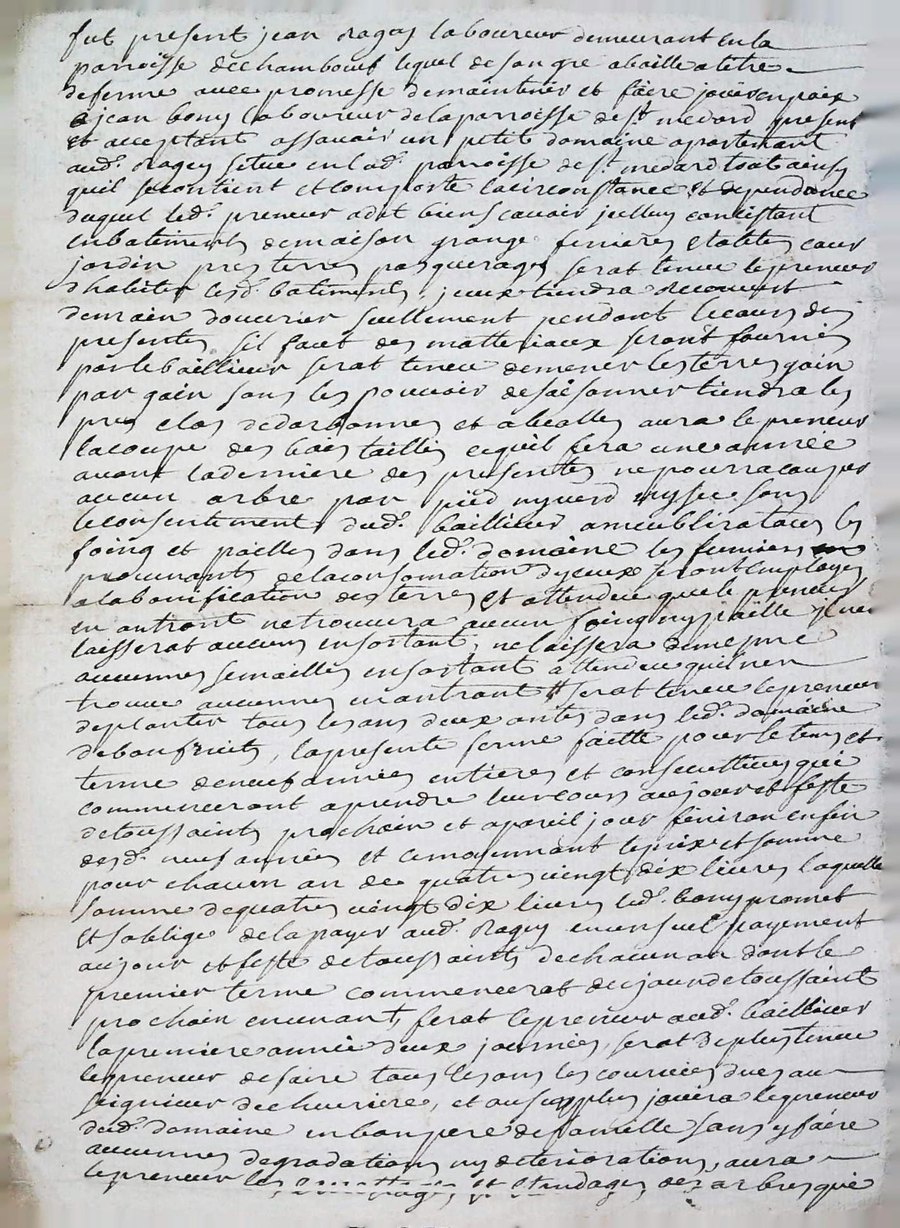 fut présent jean Ragey laboureur demeurant en la
parroisse de chambeuf lequel de son gre abaille a titre
de ferme avec promesse de maintenir et faire jouir en paix
a jean bony laboureur de la parroisse de st medard present
et acceptant assavoir un petit domaine apartenant
aud. Ragey situé en lad. parroisse de st medard tout ainsy
quil se contient et comporte la circonstance et dependance
duquel led. preneur a dit bien scavoir jcelluy consistant
en batiments de maison grange feniere etables cour
jardin pres terres pasquerages serat tenu le preneur
d'habiter lesd. batiments, jceux tiendra recouvert
de main douvrier seullement pendant le cours des
presentes sil faut des matteriaux seront fournis
par le baillieur serat tenu de mener les terres gain
par gain sans les pouvoir desaisonner tiendra les
pres clos et aura le preneur
la coupe des bois taillis et quil fera une année
avant la derniere des presentes ne pourra couper
aucun arbre par pied ny verd ny sec sans
le consentement dud. baillieur ameublira tous les
foing et pailles dans led. domaine les fumiers
provenants de la consomation dyceux seront employes
a la bonification des terres et attendu que le preneur
en antrant ne trouvera aucun foing ny paille jl ne
laisserat aucuns en sortant, ne laissera de meme
aucunes semailles en sortant attendu quil nen
trouve aucunes en antrant serat tenu le preneur
de planter tous les ans deux antes dans led. domaine
de bons fruits, la presente ferme faitte pour le tems et
terme de neuf années entieres et consecutives qui
commenceront a prendre leur cours au jour et feste
de toussaints prochain et a pareil jour finiron en fin
desd. neuf années et ce moyennant le prix et somme
pour chacun an de quatre vingt dix livres laquelle
somme de quatre vingt dix livres led. bony promet
et soblige de la payer aud. Ragey en un seul payement
au jour et feste de toussaints de chacun an dont le
premier terme commencerat du jour de toussaint
prochain en un an, ferat le preneur aud. baillieur
la premiere année deux journées, serat de plus tenu
le preneur de faire tous les ans les courvées dues au
seigneur de chevriere, et au surplus jouira le preneur
dud. domaine en bon pere de famille sans y faire
aucunes degradations ny deteriorations, aura
le preneur les et elondages des arbres que